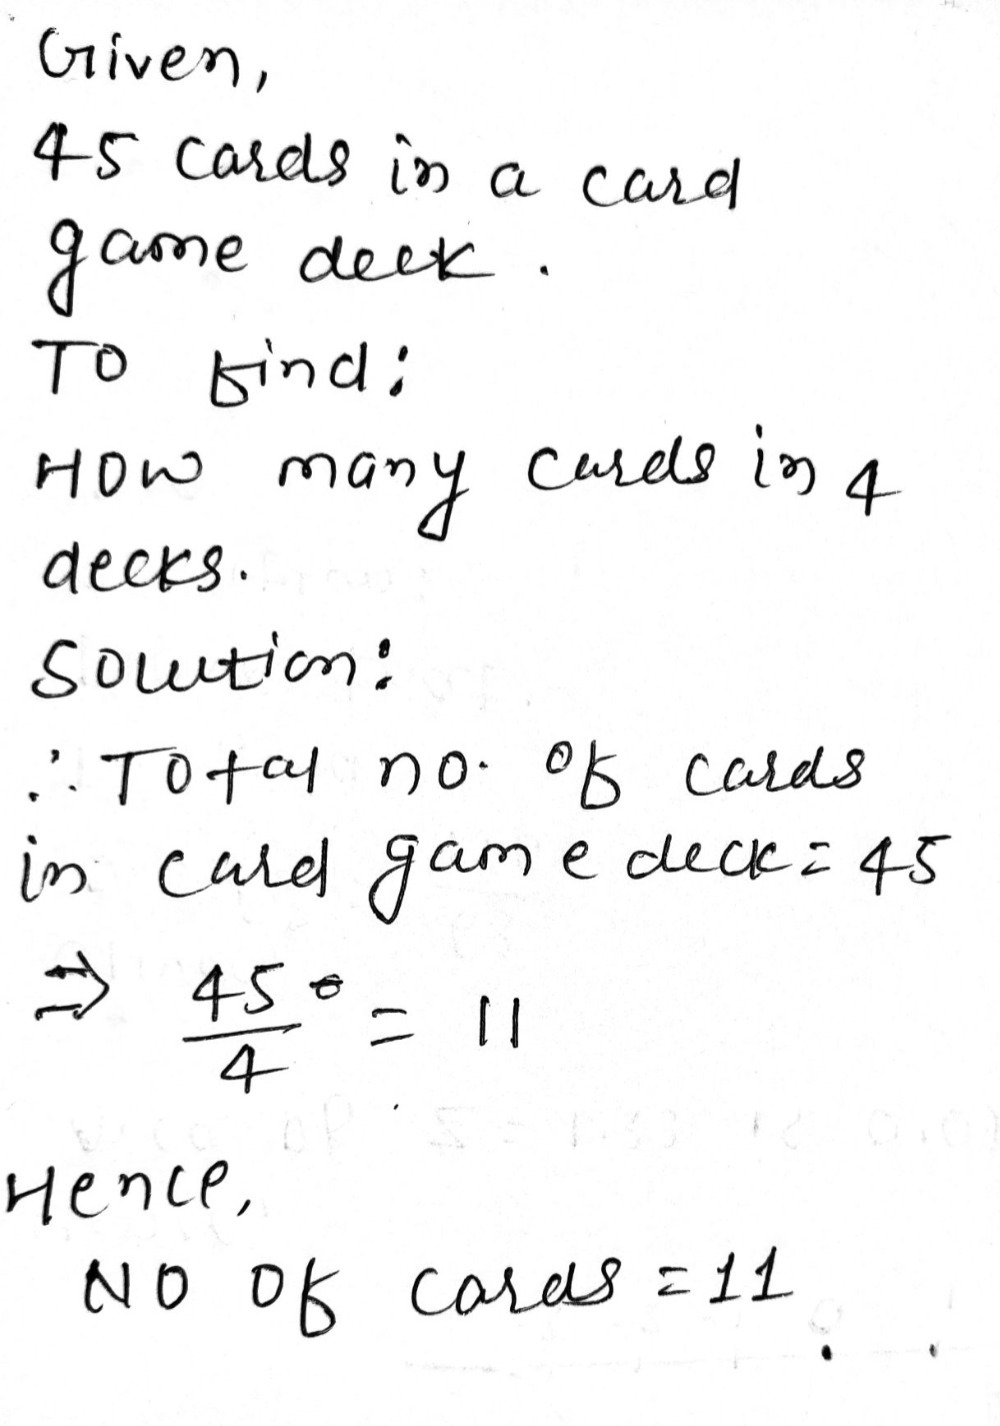 Given,
45 cards in a card
game deck.
To find:
How many cards in 4
decks.
Solution:
∴ Total no. of cards
in card game deck = 45
⇒ 45/4 = 11
Hence,
NO of cards = 11.